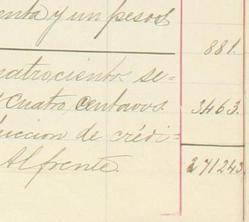 enta y un pesos
881.
uatrociento se-
cuatro, centavos
3463.
uccion de crédi-
Al frente.
271243.